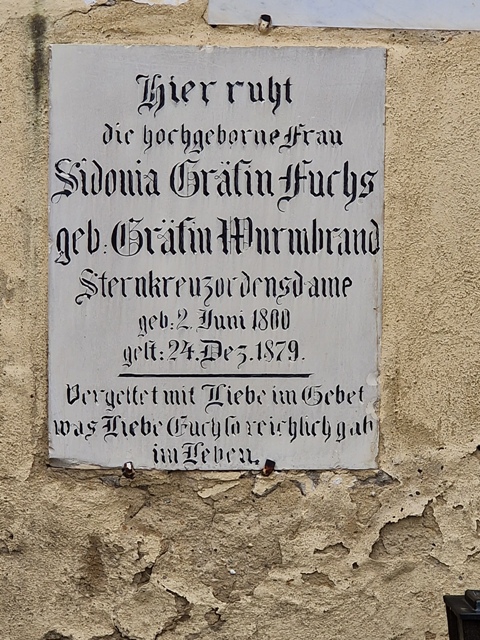 Hier ruht
die hochgeborne Frau
Sidonia Gräfin Fuchs
geb: Gräfin Wurmbrand
Sternkreuzordensdame
geb: 2. Juni 1800
gest: 24. Dez. 1879.
Vergeltet mit Liebe im Gebet
was Liebe Euch so reichlich gab
im Leben.